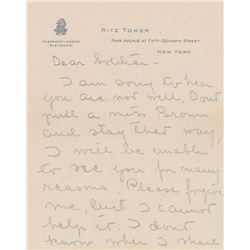 RITZ TOWER
TELEGRAPHIC ADDRESS
"RITZTOWER"
PARK AVENUE AT FIFTY-SEVENTH STREET
NEW YORK
Dear Soldier-
I am sorry to hear
you are not well, Don't
pull a miss Brown
and stay that way,
I will be unable
to see you for many
reasons. Please forgive
me, but I cannot
help it. I don't
know when I shall